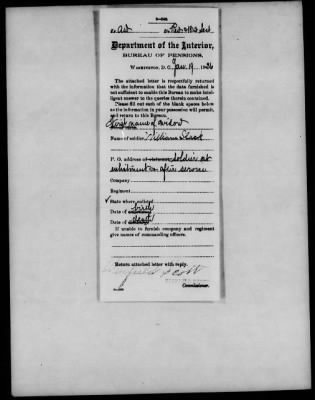 3—545
Department of the Interior,
BUREAU OF PENSIONS,
WASHINGTON, D. C., Jan. 19, 1926
The attached letter is respectfully returned
with the information that the data furnished is
not sufficient to enable this Bureau to make intelligent
answer to the queries therein contained.
Please fill out each of the blank spaces below
as the information in your possession will permit
and return to this Bureau.
first name of widow
Name of soldier, William Clark
P. O. address at enlistment soldier at
enlistment or after service
Company
Regiment
✓ State where enlisted
Date of birth
Date of death
If unable to furnish company and regiment
give names of commanding officers.
Return attached letter with reply.
Winfield Scott
Commissioner.